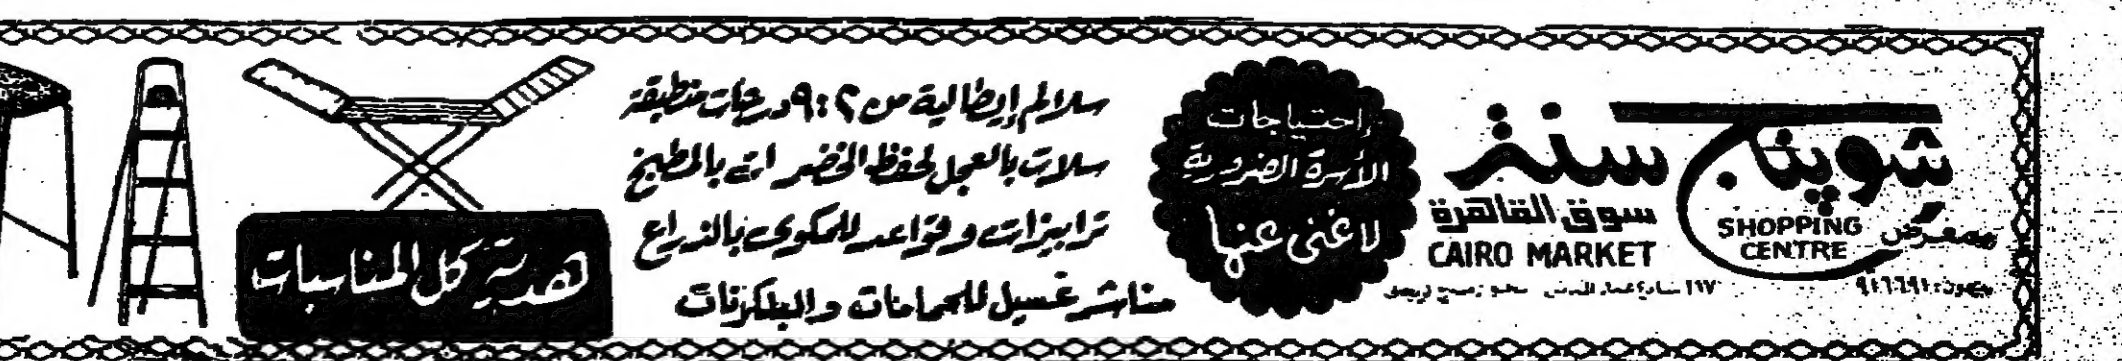 شوبنج سنتر
معرض
SHOPPING
CENTRE
سوق القاهرة
CAIRO MARKET
احتياجات
الأسرة الضرورية
لا غنى عنها
سلالم إيطالية من ٢ : ٩ درجات منطبقة
سلات بالعجل لحفظ الخضراوات بالمطبخ
ترابيزات وقواعد للمكوى بالذراع
مناشر غسيل للحمامات والبلكونات
هدية كل المناسبات